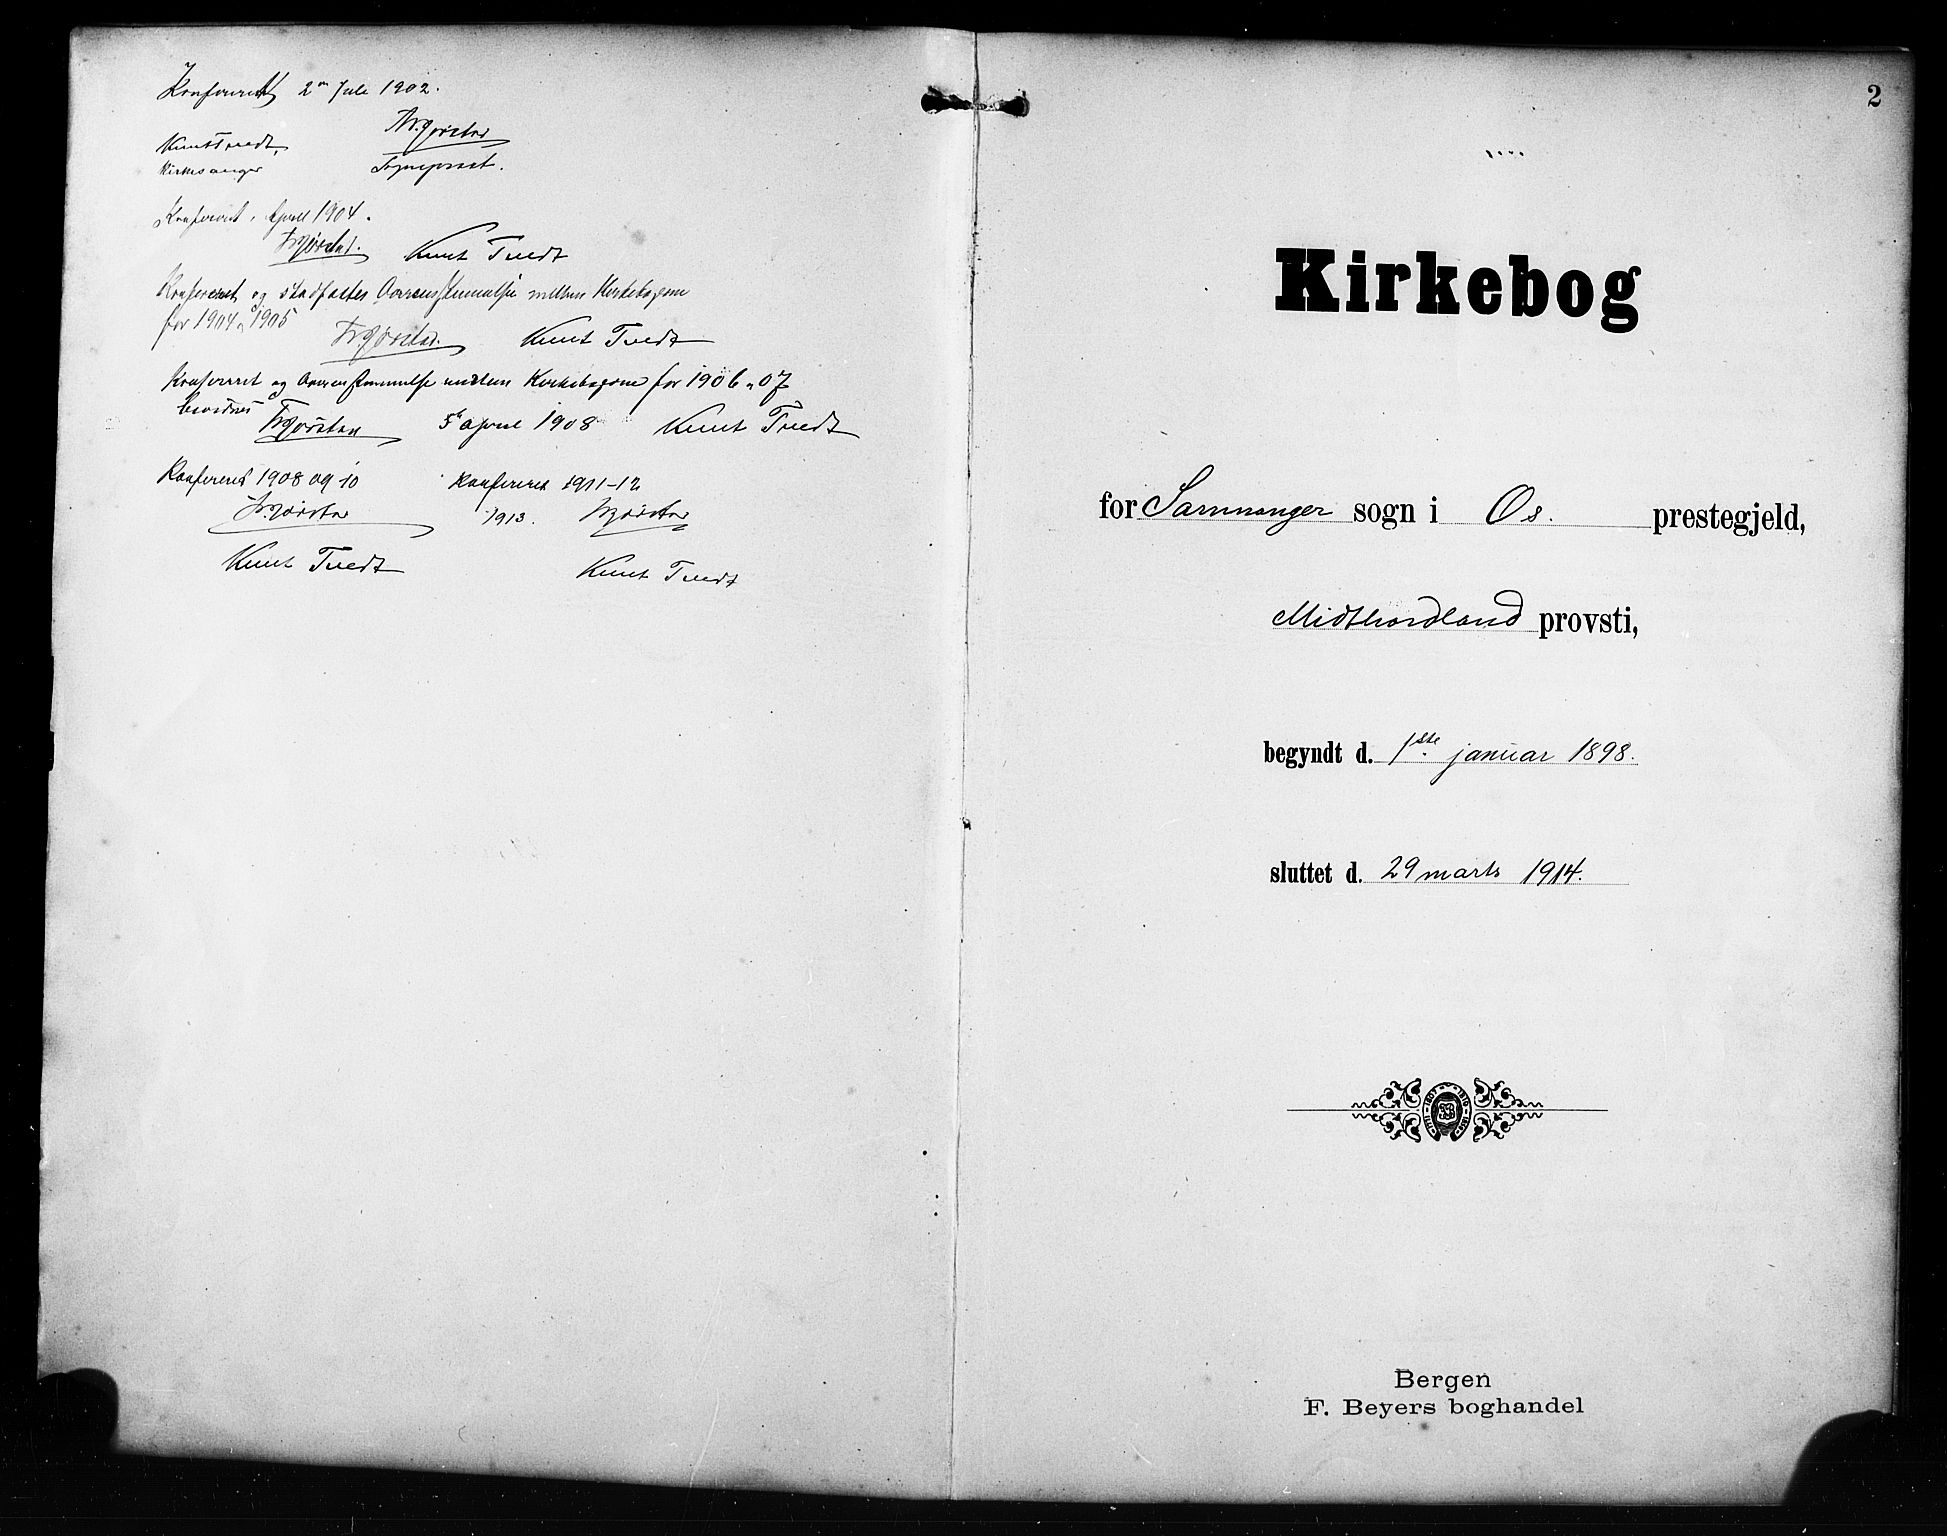 Konfereret 2en Juli 1902.
Knut Tvedt,
Kirkesanger
Sogneprest.
Konfereret, April 1904.
Knut Tvedt
Konfereret og stadfæstes Overensstemmelse mellem Kirkebøgerne
for 1904 og 1905
Knut Tvedt
Konfereret og Overensstemmelse mellem Kirkebøgerne for 1906 og 07
bevidnes
5te april 1908 Knut Tvedt
Konfereret 1908 og 10
Knut Tvedt
Konfereret 1911-12
1913.
Knut Tvedt
2
Kirkebog
for Samnanger sogn i Os. prestegjeld,
Midthordland provsti,
begyndt d. 1ste januar 1898.
sluttet d. 29 marts 1914.
Bergen
F. Beyers boghandel